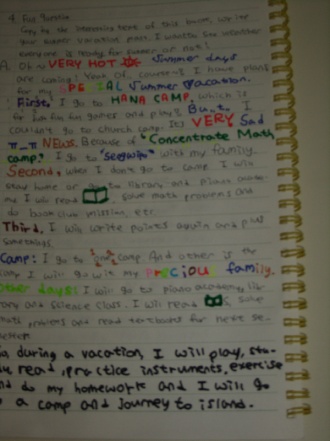 everyone is ready for summer or not!
A. Oh~ VERY HOT Summer days
are coming! Yeah Of course I have plans
for my SPECIAL Summer Vacation.
First, I go to HANA CAMP, which is
for fun games and play! But I
couldn't go to church camp. It's VERY Sad
π_π NEWS. Because of "Concentrate Math
camp." I go to with my family.
Second, when I don't go to camp, I will
stay home or go to library and piano
I will read , solve math problems and
do book club mission, etc.
Third, I will write points again and plus
somethings.
Camp: I go to camp And other is
camp I will go with my PRECIOUS family.
other days: I will go to piano academy,
and science class. I will read , solve
math problems and read textbooks for next se-
mester
during a vacation, I will play, stu-
read, practice instruments, exercise
and do my homework and I will go
o a camp and journey to island.